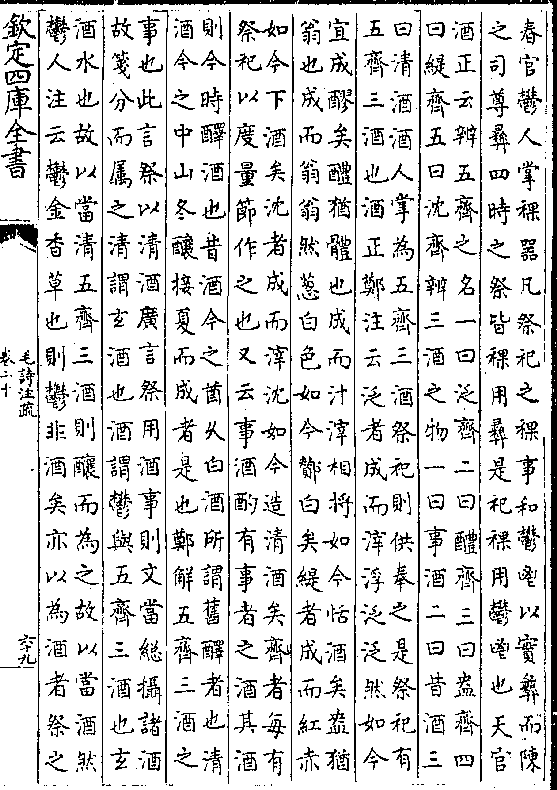 春官鬱人掌祼器凡祭祀之祼事和鬱鬯以實彝而陳
之司尊彝四時之祭皆祼用彝是祀祼用鬱鬯也天官
酒正云辨五齊之名一曰泛齊二曰醴齊三曰盎齊四
曰緹齊五曰沈齊辨三酒之物一曰事酒二曰昔酒三
曰清酒酒人掌為五齊三酒祭祀則供奉之是祭祀有
五齊三酒也酒正鄭注云泛者成而滓浮泛泛然如今
宜成醪矣醴猶體也成而汁滓相將如今恬酒矣盎猶
翁也成而翁翁然葱白色如今酇白矣緹者成而紅赤
如今下酒矣沈者成而滓沈如今造清酒矣齊者每有
祭祀以度量節作之也又云事酒酌有事者之酒其酒
則今時醳酒也昔酒今之酋久白酒所謂舊醳者也清
酒今之中山冬釀接夏而成者是也鄭解五齊三酒之
事也此言祭以清酒廣言祭用酒事則文當總攝諸酒
故箋分而属之清謂玄酒也酒謂鬱與五齊三酒也玄
酒水也故以當清五齊三酒則釀而為之故以當酒然
鬱人注云鬱金香草也則鬱非酒矣亦以為酒者祭之
欽定四庫全書
毛詩注疏
卷二十
六十九